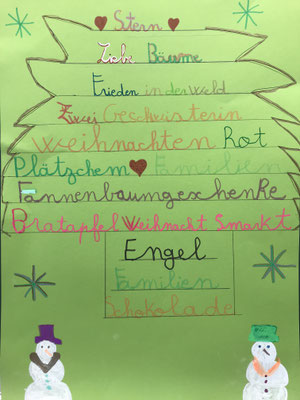 Stern
Lob Bäume
Frieden in der Wald
Zwei Geschwisterin
Weihnachten Rot
Plätzchem Familien
Tannenbaumgeschenke
Bratapfel Weihnacht Smarkt
Engel
Familien
Schokolade